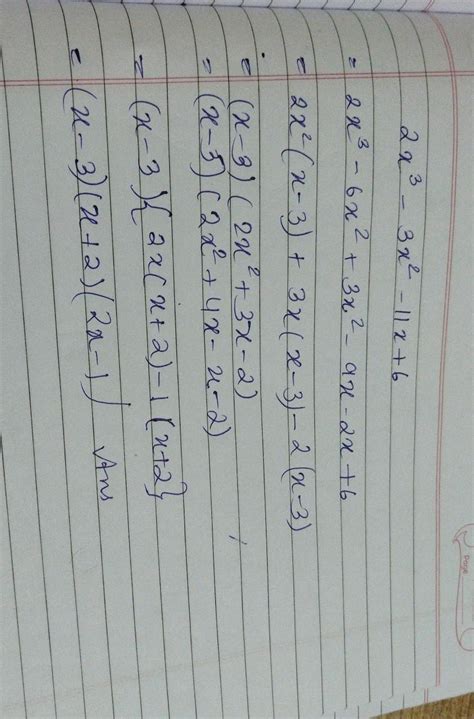 Page
2x³ - 3x² - 11x + 6
= 2x³ - 6x² + 3x² - 9x - 2x + 6
= 2x² (x - 3) + 3x (x - 3) - 2 (x - 3)
= (x - 3) (2x² + 3x - 2)
= (x - 3) (2x² + 4x - x - 2)
= (x - 3) { 2x (x + 2) - 1 (x + 2}
= (x - 3) (x + 2) (2x - 1) Ans